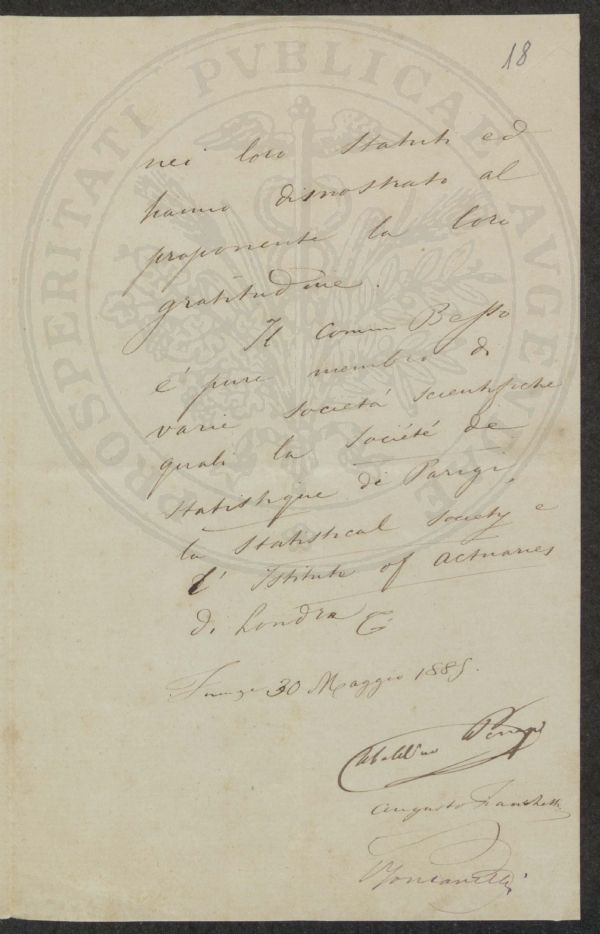 18
nei loro statuti ed
hanno dimostrato al
proponente la loro
gratitudine.
Il Comm Besso
é pure membro di
varie società scientifiche
quali la Société de
Statistique di Parigi,
la Statistical Society e
l' Istitute of Actuaries
di Londra
Firenze 30 Maggio 1885.
Ubaldino Peruzzi
Augusto Franchetti
PROSPERITATI PVBLICAE AVGENDAE